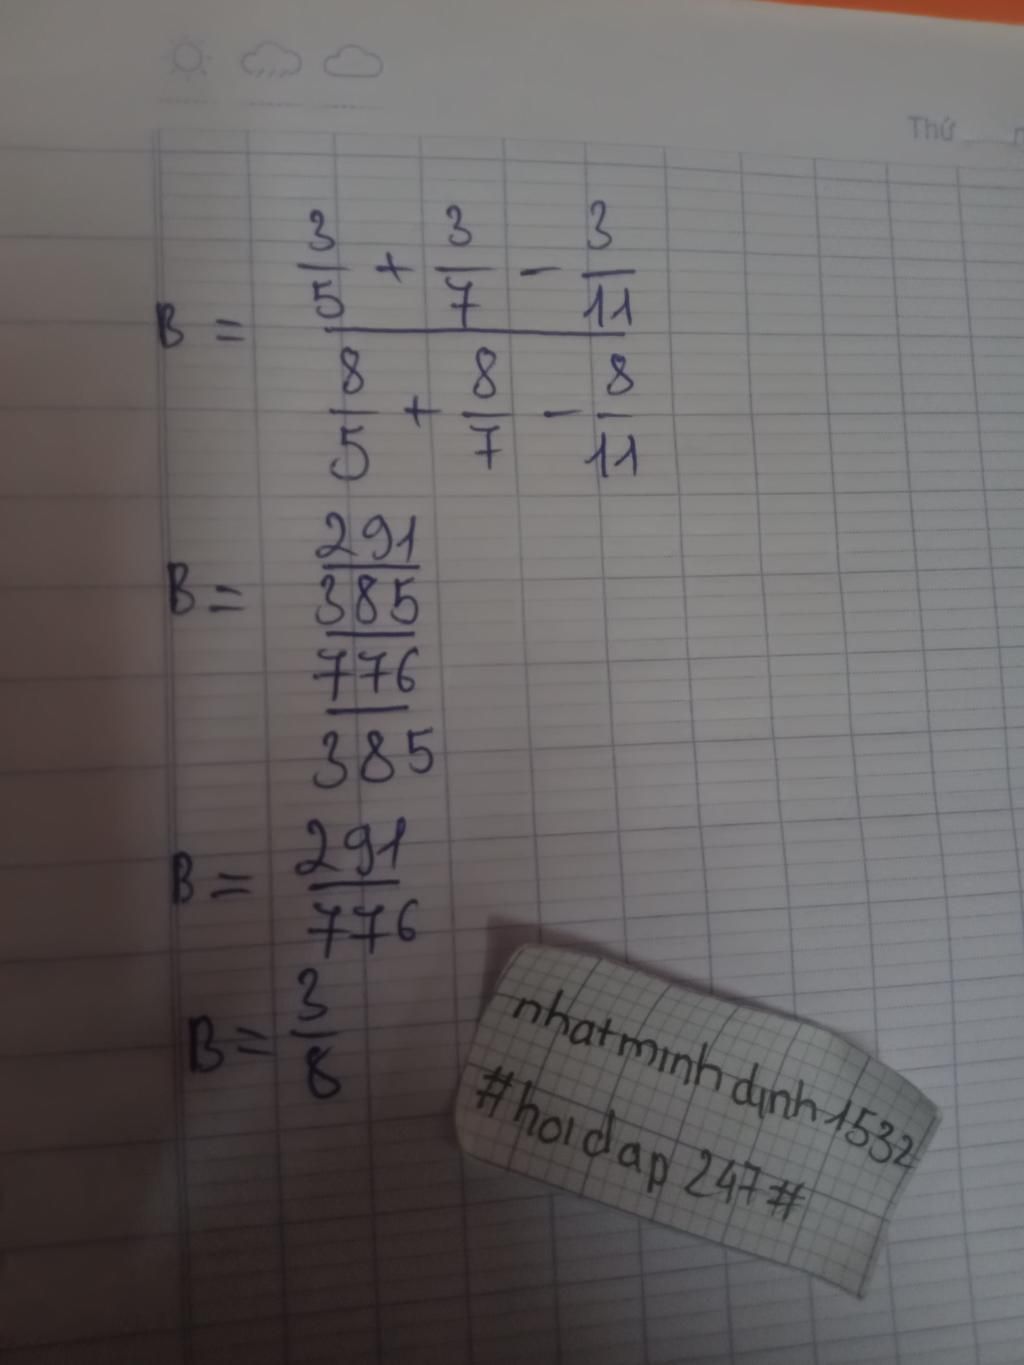 Thứ
3/5 + 3/7 - 3/11
B =
8/5 + 8/7 - 8/11
291
B = 385
776
385
B = 291/776
B = 3/8
nhatminhdịnh1532
#hoidap247#